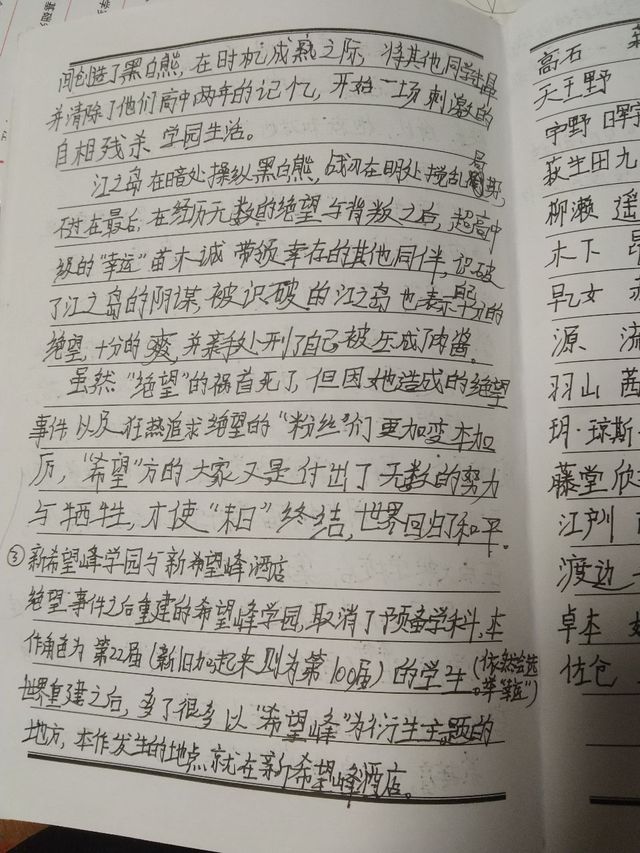 间创造了黑白熊,在时机成熟之际,将其他同学
并清除了他们高中两年的记忆,开始一场刺激的
自相残杀 学园生活。
江之岛在暗处操纵黑白熊,战刃在明处搅乱局势,
不过在最后,在经历无数的绝望与背叛之后,超高中
级的“幸运”苗木诚 带领幸存的其他同伴,识破
了江之岛的阴谋,被识破的江之岛也表示十分的
绝望,十分的爽,并亲手处刑了自己被压成了肉酱。
虽然“绝望”的祸首死了,但因她造成的绝望
事件以及狂热追求绝望的“粉丝”们更加变本加
厉,“希望”方的大家又是付出了无数的努力
与牺牲,才使“末日”终结,世界回归了和平。
③新希望峰学园与新希望峰酒店
绝望事件之后重建的希望峰学园,取消了预备学科,本
作角色为第22届(新旧加起来则为第100届)的学生(依然会选
举“幸运”)。
世界重建之后,多了很多以“希望峰”为衍生主题的
地方,本作发生的地点就在新希望峰酒店。
高石
天王野
宇野 日
荻生田 九
柳濑 遥
木下 昂
早乙女
源 流
羽山 茜
玥·琼斯·
藤堂 欣
江户川
渡边
卓本
佐仓